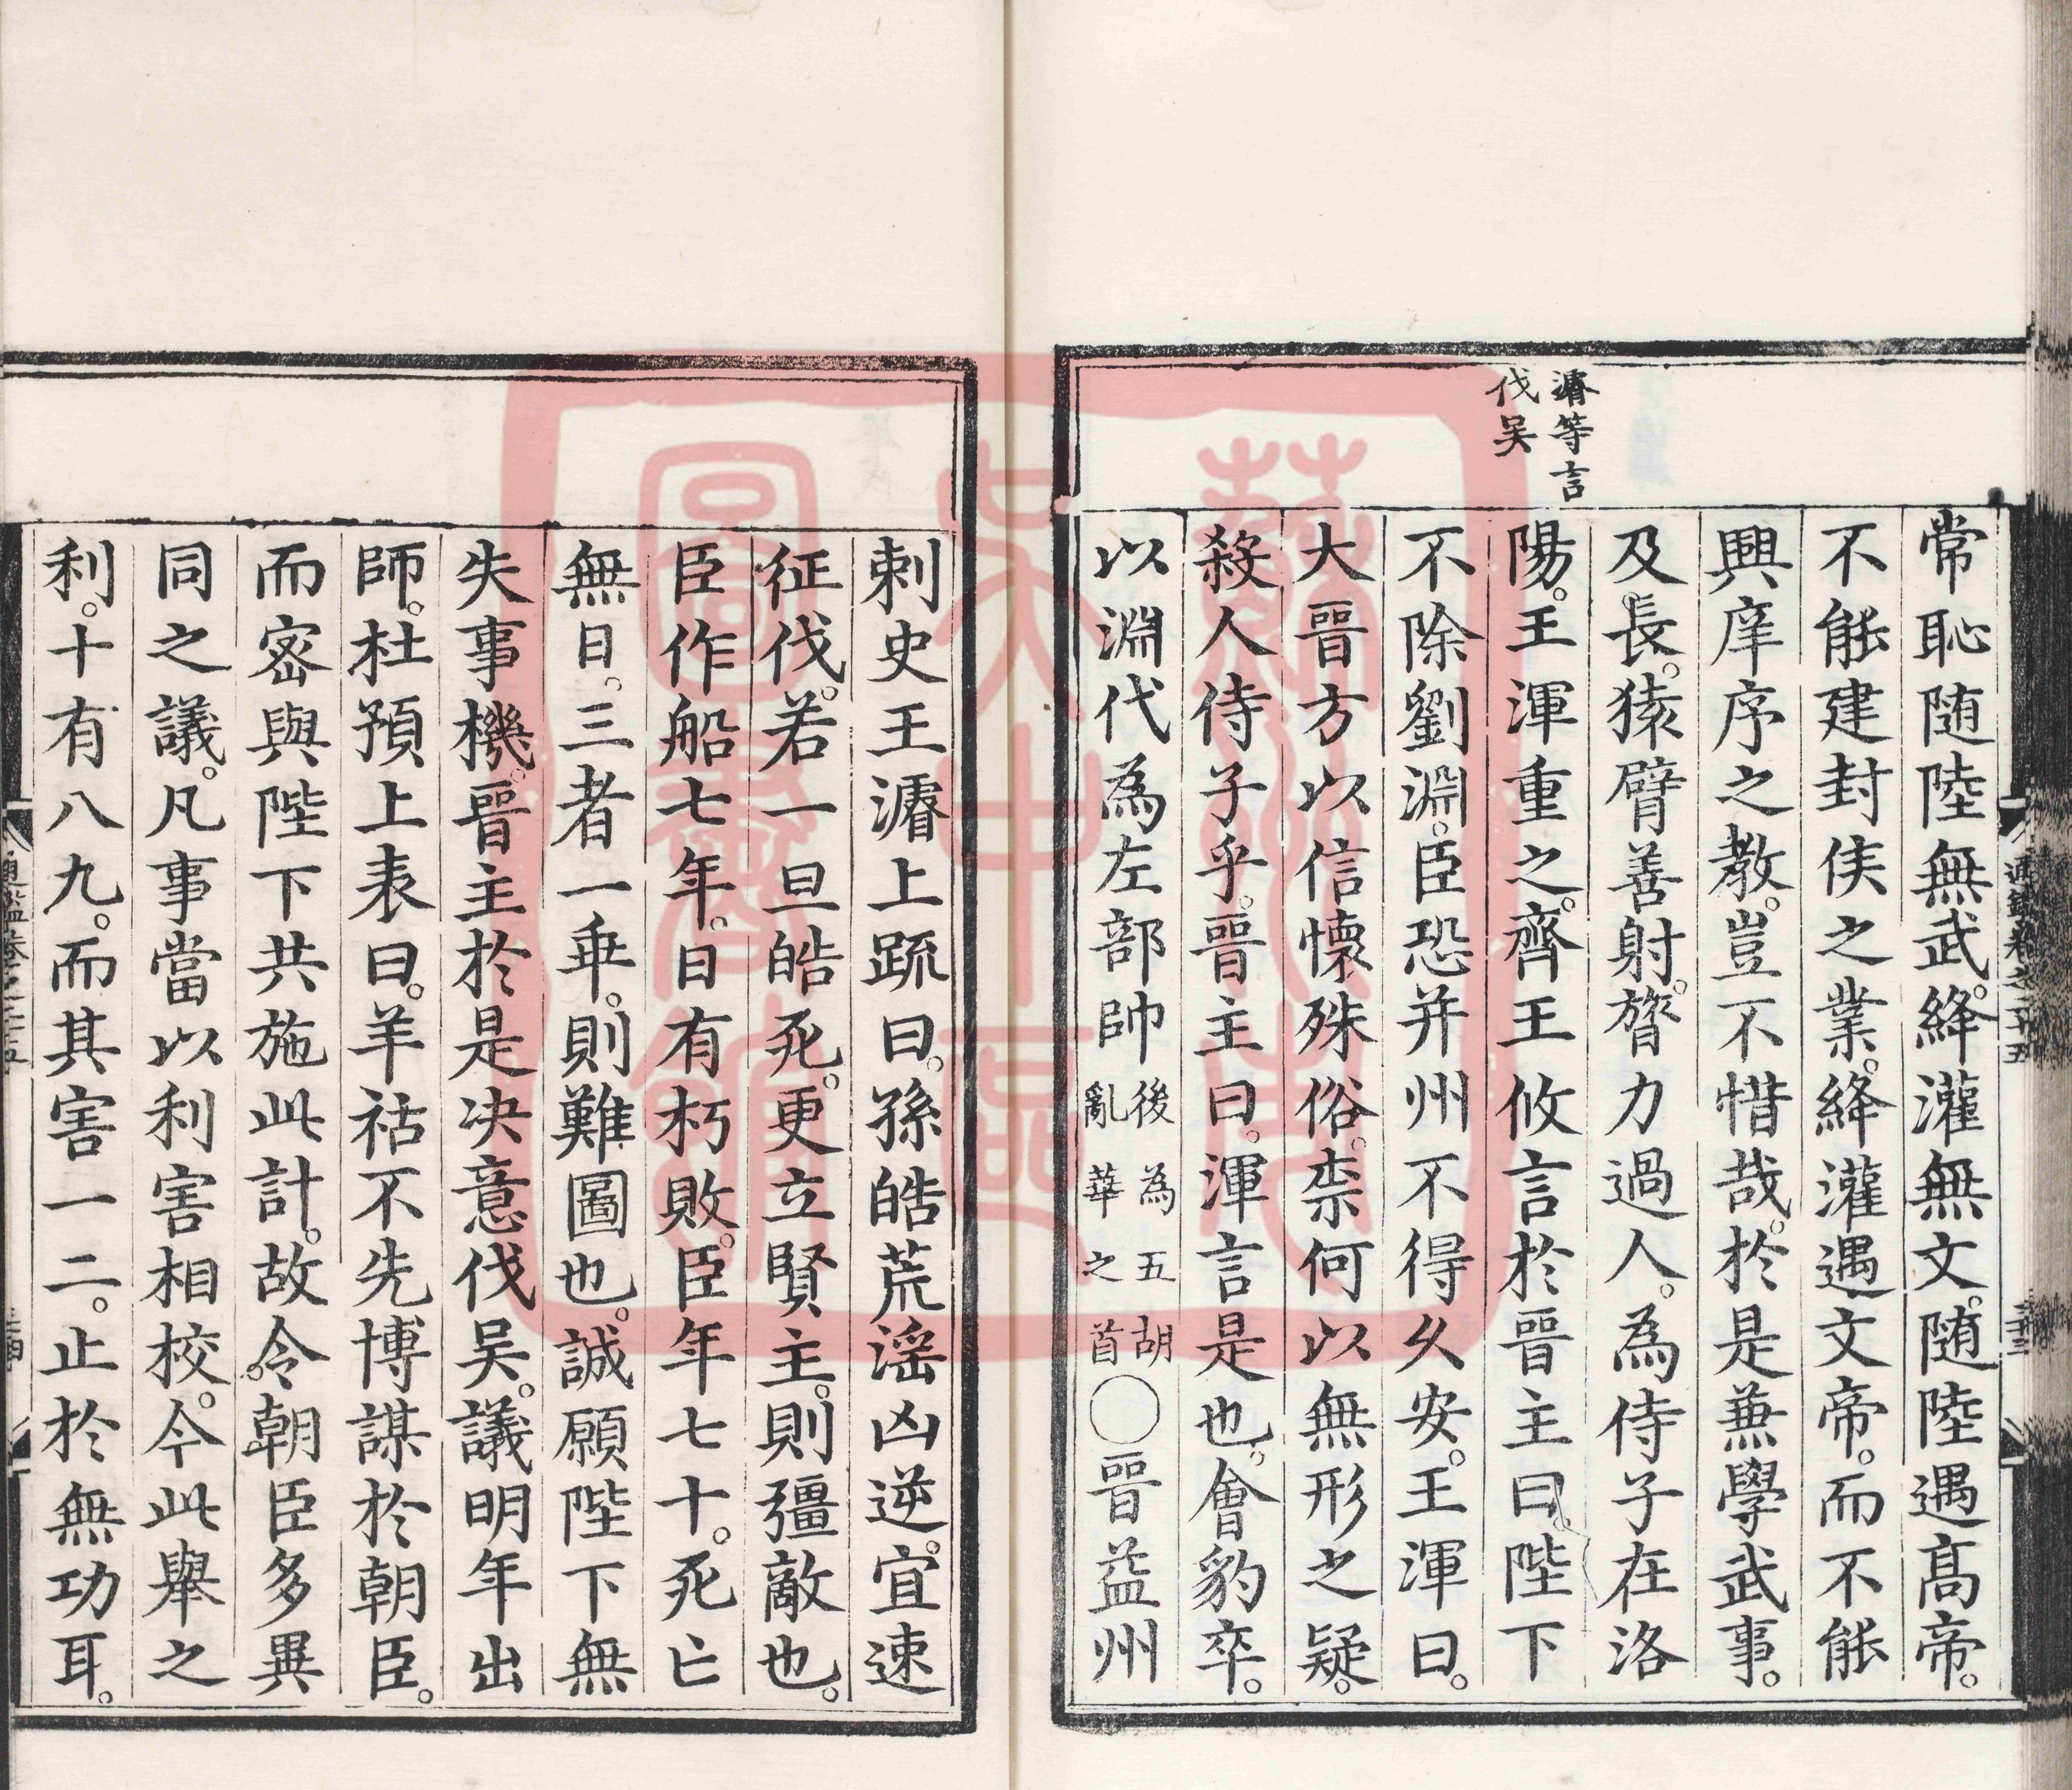 常恥随陸無武。絳灌無文。随陸遇髙帝。
不能建封侯之業。絳灌遇文帝。而不能
興庠序之教。豈不惜哉。於是兼學武事。
及長。猿臂善射。膂力過人。為侍子在洛
陽。王渾重之。齊王攸言於晉主曰。陛下
不除劉淵。臣恐并州不得乆安。王渾曰。
大晉方以信懷殊俗。柰何以無形之疑。
殺人侍子乎。晉主曰。渾言是也。會豹卒。
以淵代為左部帥後為五胡亂華之首〇晉益州
濬等言
伐吴
刺史王濬上疏曰。孫皓荒淫凶逆。宜速
征伐。若一旦皓死。更立賢主。則彊敵也。
臣作船七年。日有朽敗。臣年七十。死亡
無日。三者一乖。則難圖也。誠願陛下無
失事機。晉主於是决意伐吴。議明年出
師。杜預上表曰。羊祜不先博謀於朝臣。
而宻與陛下共施此計。故令。朝臣多異
同之議。凡事當以利害相校。今此舉之
利。十有八九。而其害一二。止於無功耳。
蘇州
吴中區
圖書館